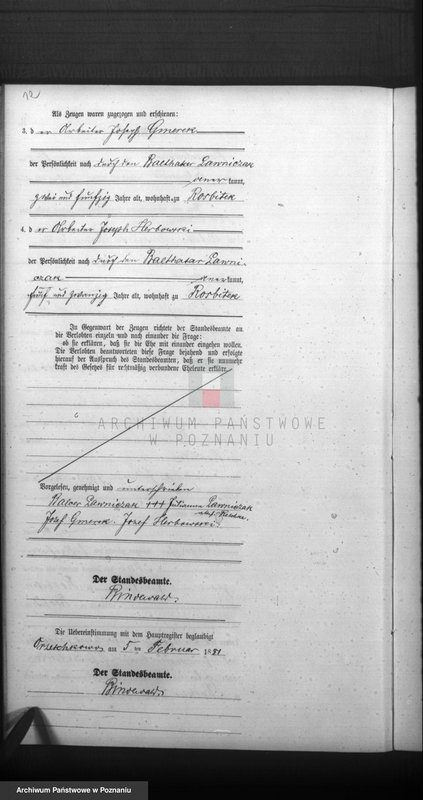 12
Als Zeugen waren zugezogen und erschienen:
3. d er Arbeiter Joseph Gmerek
der Persönlichkeit nach durch den Balthasar Lawniczak
aner kannt,
zwei und fünfzig Jahre alt, wohnhaft zu Rorbitek
4. d er Arbeiter Joseph Herbowski
der Persönlichkeit nach durch den Balthasar Lawni-
czak aner kannt,
fünf und zwanzig Jahre alt, wohnhaft zu Rorbitek
In Gegenwart der Zeugen richtete der Standesbeamte an
die Verlobten einzeln und nach einander die Frage:
ob sie erklären, daß sie die Ehe mit einander eingehen wollen.
Die Verlobten beantworteten diese Frage bejahend und erfolgte
hierauf der Ausspruch des Standesbeamten, daß er sie nunmehr
kraft des Gesetzes für rechtmäßig verbundene Eheleute erkläre.
ARCHIWUM PAŃSTWOWE
W POZNANIU
Vorgelesen, genehmigt und unterschrieben
Lawniczak +++ Julianna Lawniczak
Józef Gmerek. Józef Herbowski.
Der Standesbeamte.
Bindewald.
Die Uebereinstimmung mit dem Hauptregister beglaubigt
am 5 ten Februar 1881
Der Standesbeamte.
Bindewald
Archiwum Państwowe w Poznaniu